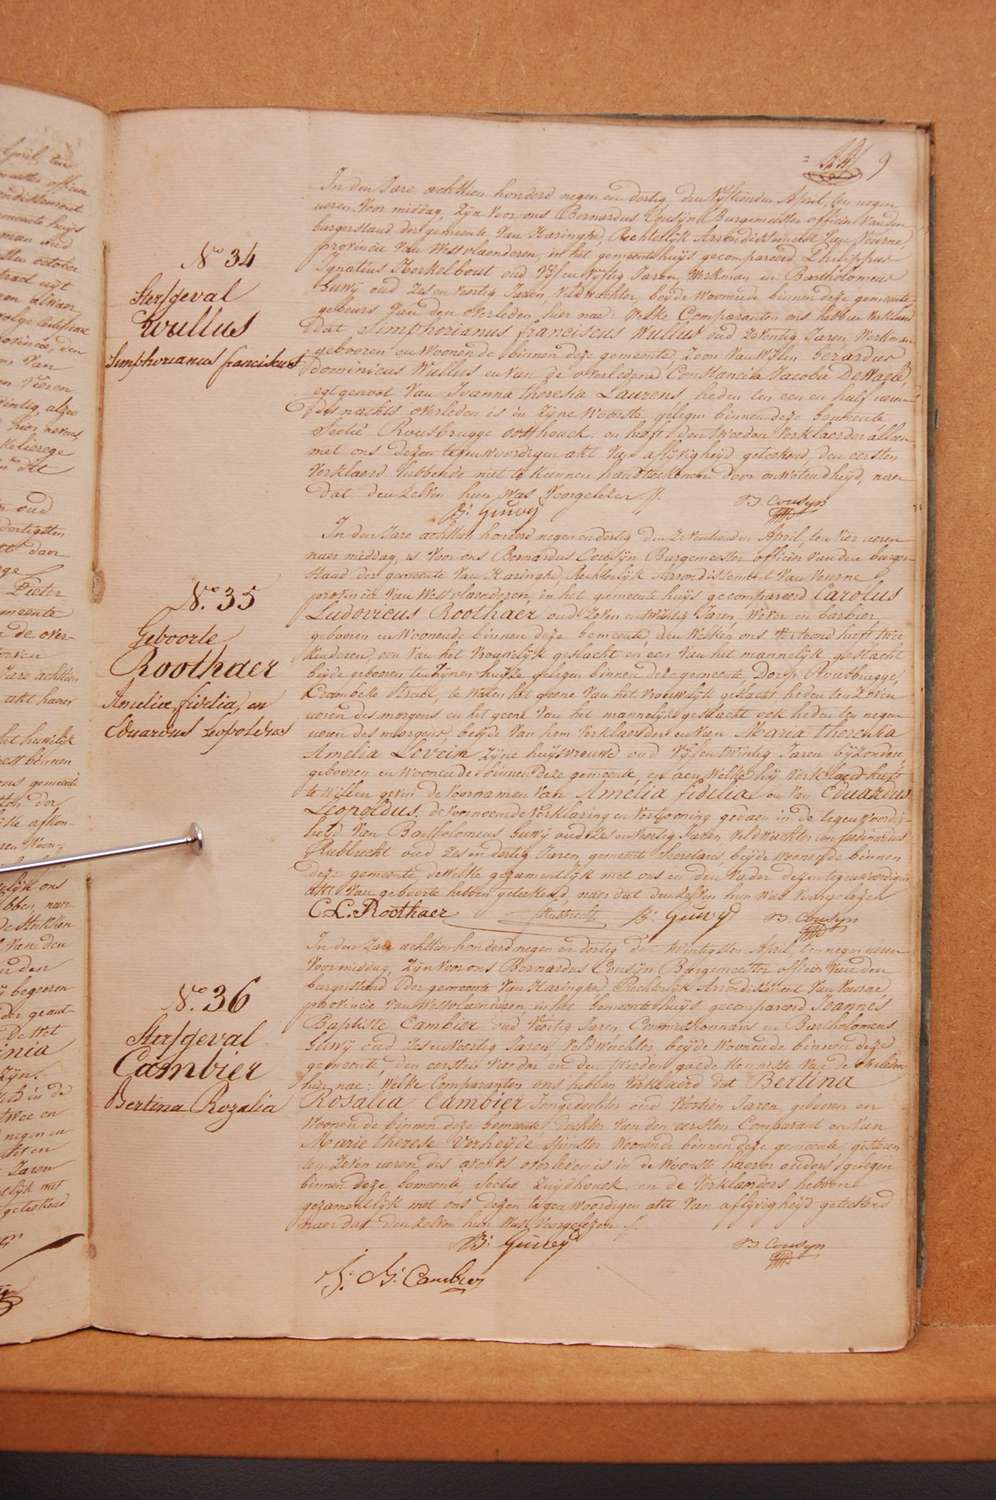 9
No 34
Sterfgeval
Wullus
Simphorianus franciscus
In den Jare achttien honderd negen en dertig, den Vijftienden April, ten negen
ueren voor middag, Zijn voor ons Bernardus Cousijn Burgemeester officier van den
burgerstand der gemeente van Haringhe, Rechterlijk Arrondissement van Veurne
provincie van Westvlaenderen, in het gemeentehuijs gecompareerd Philippus
Ignatius Kerkelbout oud Vijf en Vijftig Jaren, Werkman en Bartholomeus
Guwij oud Zes en Veertig Jaren, Veldwachter, beijde Woonende binnen deze gemeente,
gebeurs van den overleden hier nae: Welke Comparanten ons hebben Verklaerd
Dat Simphorianus franciscus Wullus oud Zeventig Jaren, Werkman
gebooren en Woonende binnen deze gemeente, Zoon van Wijlen Gerardus
Dominicus Wullus en van de overledene Constancia Jacoba Dewaele,
egtgenoot Van Joanna theresia Laurens, heden ten een en half ueren
des nachts overleden is in Zijne Woonste, gelegen binnen deze Gemeente
Sectie Rousbrugge oosthouck, en heeft den tweeden Verklaerder alleen
met ons dezen tegenwoordigen akt Van aflijvigheijd geteekend, den eersten
Verklaerd hebbende niet te kunnen handteekenen door onwetendheijd, naer
dat den zelven hun Was Voorgelezen //.
B: Guwij
B Cousyn
No 35
Geboorte
Roothaer
Amelia, fidelia, en
Eduardus Leopoldus
In den Jare achttien honderd negen en dertig den Zestienden April, ten Vier ueren
naer middag, is Voor ons Bernardus Cousijn Burgemeester officier van den burger
stand der gemeente Van Haringhe, Rechterlijk Arrondissement Van Veurne
provincie Van Westvlaenderen, in het gemeente huijs gecompareerd Carolus
Ludovicus Roothaer oud Zeven en Twintig Jaren, Wever en barbier
gebooren en Woonende binnen deze Gemeente, den Welken ons Vertoond heeft twee
kinderen een Van het Vrouwelijk geslacht en een Van het mannelijk geslacht
beijde gebooren ten Zijnen huijze gelegen binnen deze gemeente, Dorp Rousbrugge,
Crombeke Straet, te Weten het geene Van het Vrouwelijk geslacht heden ten Zeven
ueren des morgens en het geene Van het mannelijk geslacht ook heden ten negen
ueren des morgens, beijde Van hem Verklaerder en Van Maria theresia
Amelia Lovein Zijne huijsvrouwe oud Vijf en Twintig Jaren bijzondere
gebooren en Woonende binnen deze gemeente, en aen Welke hij Verklaerd heeft
te Willen geven de Voornamen Van Amelia fidelia en Van Eduardus
Leopoldus, de Voornoemde Verklaring en Vertooning gedaen in de tegenwoordig
heijd Van Bartholomeus Guwij oud Zes en Veertig Jaren Veldwachter en ferdinandus
Rubbrecht oud Zes en dertig Jaren, gemeente Secretaris, beijde Woonende binnen
deze gemeente, dewelke gezamentlijk met ons en den Vader dezen tegenwoordigen
akt Van geboorte hebben geteekend, naer dat den zelven hun Was Voorgelezen
C L Roothaer
Rubbrecht
B: Guwij
B Cousyn
No 36
Sterfgeval
Cambier
Bertina Rozalia
In den Jare achttien honderd negen en dertig den Twintigsten April ten negen ueren
Voor middag, Zijn voor ons Bernardus Cousijn Burgemeester officier van den
burgerstand der gemeente Van Haringhe, Rechterlijk Arrondissement Van Veurne
provincie Van Westvlaenderen, in het Gemeentehuijs gecompareerd Joannes
Baptiste Cambier oud Veertig Jaren, Commissionnaris en Bartholomeus
Guwij oud Zes en Veertig Jaren, Veldwachter, beijde Woonende binnen deze
gemeente, den eersten Vader en den tweeden goede Kennisse Van de overledene
hier nae: Welke Comparanten ons hebben Verklaerd dat Bertina
Rosalia Cambier Jongedochter oud Veertien Jaren, gebooren en
Woonende binnen deze Gemeente, Dochter van den eersten Comparant en van
Marie therese Verheijde Spinster Woonende binnen deze gemeente, gisteren
ten Zeven ueren des avonds overleden is in de Woonste haerer ouders, gelegen
binnen deze Gemeente, Sectie Zuijdhouck, en de Verklaerders hebben
gezamentlijk met ons dezen tegenwoordigen akt Van aflijvigheijd geteekend
naer dat den zelven hun Was Voorgelezen //.
B: Guwij
B Cousyn
J: B: Cambier